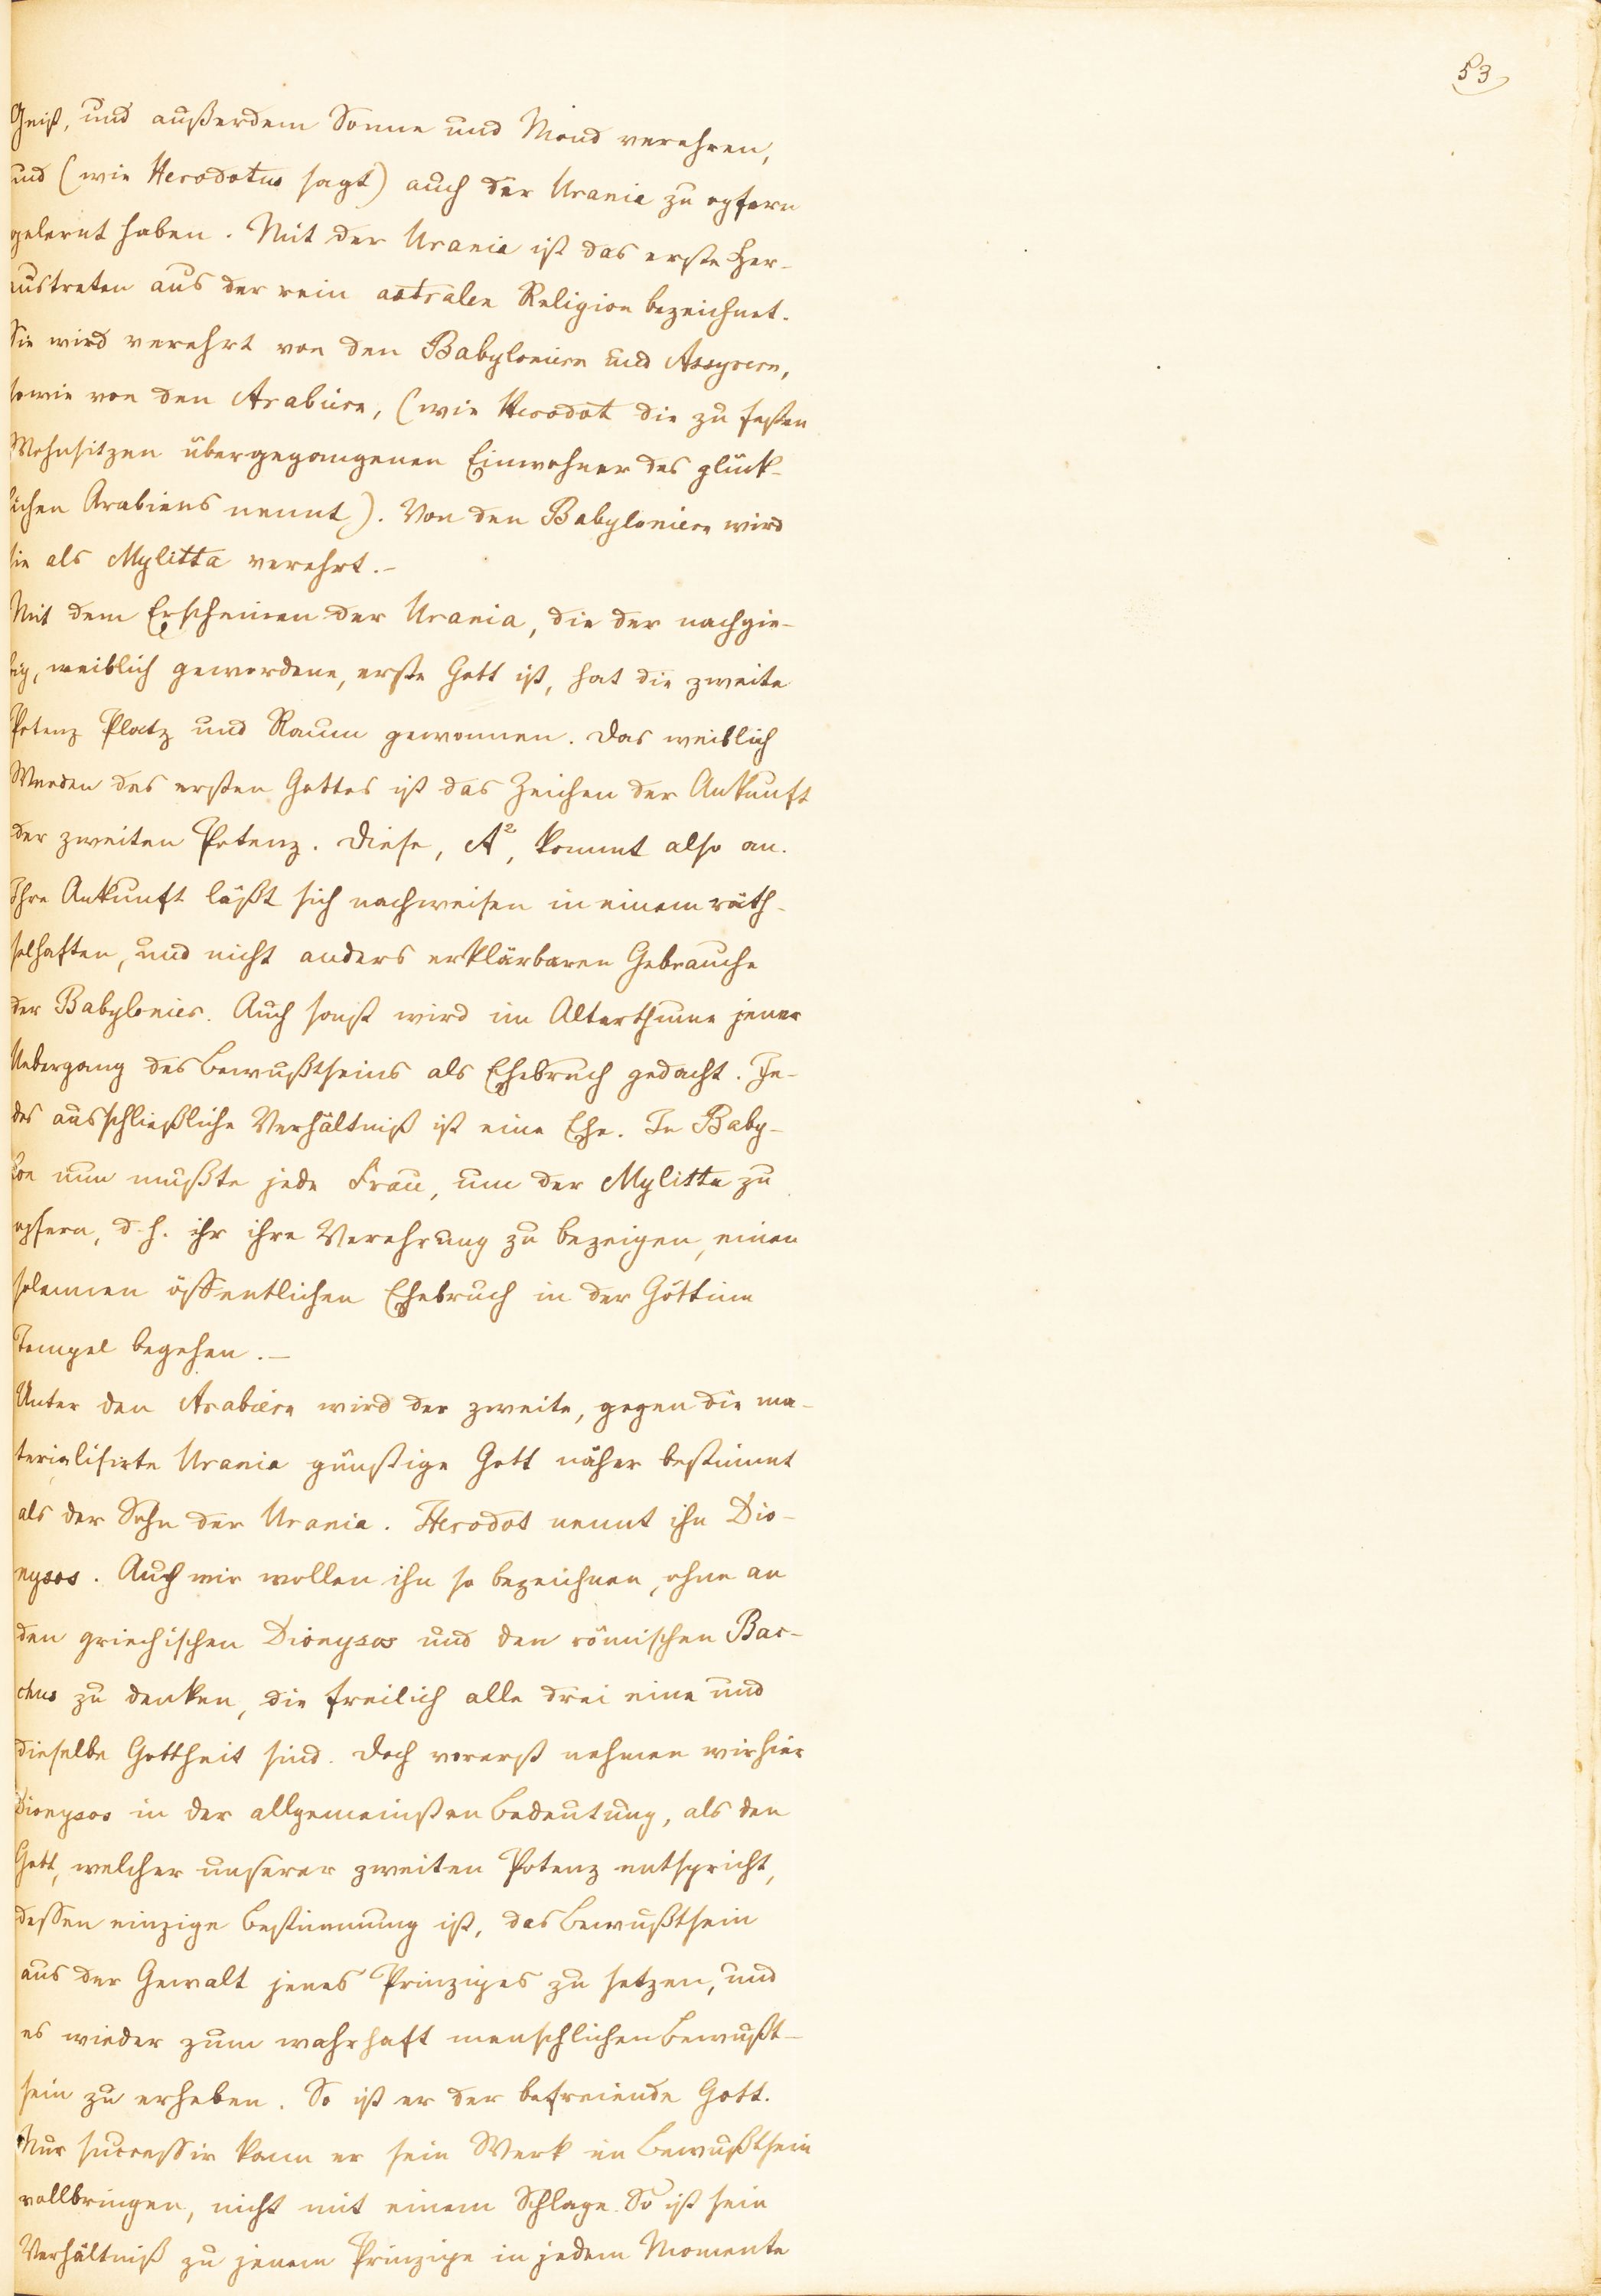 53
Geist, und außerdem Sonne und Mond verehren,
und (wie Herodotus sagt) auch der Urania zu opfern
gelernt haben. Mit der Urania ist das erste Her-
austreten aus der rein astralen Religion bezeichnet.
Sie wird verehrt von den Babyloniern und Assyrern,
sowie von den Arabiern, (wie Herodot die zu festen
Wohnsitzen übergegangenen Einwohner des glück-
lichen Arabiens nennt). Von den Babyloniern wird
sie als Mylitta verehrt.-
Mit dem Erscheinen der Urania, die der nachgie-
big, weiblich gewordene, erste Gott ist, hat die zweite
Potenz Platz und Raum gewonnen. Das weiblich
Werden des ersten Gottes ist das Zeichen der Ankunft
der zweiten Potenz. Diese, A², kommt also an.
Ihre Ankunft läßt sich nachweisen in einem räth-
selhaften, und nicht anders erklärbaren Gebrauche
der Babylonier. Auch sonst wird im Alterthume jener
Uebergang des Bewußtseins als Ehebruch gedacht. Je-
des ausschließliche Verhältniß ist eine Ehe. In Baby-
lon nun mußte jede Frau, um der Mylitta zu
opfern, d. h. ihr ihre Verehrung zu bezeigen, einen
solennen öffentlichen Ehebruch in der Göttinn
Tempel begehen.-
Unter den Arabiern wird der zweite, gegen die ma-
terialisirte Urania günstige Gott näher bestimmt
als der Sohn der Urania. Herodot nennt ihn Dio-
nysos. Auch wir wollen ihn so bezeichnen, ohne an
den griechischen Dionysos und den römischen Bac-
chus zu denken, die freilich alle drei eine und
dieselbe Gottheit sind. Doch vorerst nehmen wir hier
Dionysos in der allgemeinsten Bedeutung, als den
Gott, welcher unserer zweiten Potenz entspricht,
dessen einzige Bestimmung ist, das Bewußtsein
aus der Gewalt jenes Prinzipes zu setzen, und
es wieder zum wahrhaft menschlichen Bewußt-
sein zu erheben. So ist er der befreiende Gott.
Nur successiv kann er sein Werk im Bewußtsein
vollbringen, nicht mit einem Schlage. So ist sein
Verhältniß zu jenem Prinzipe in jedem Momente